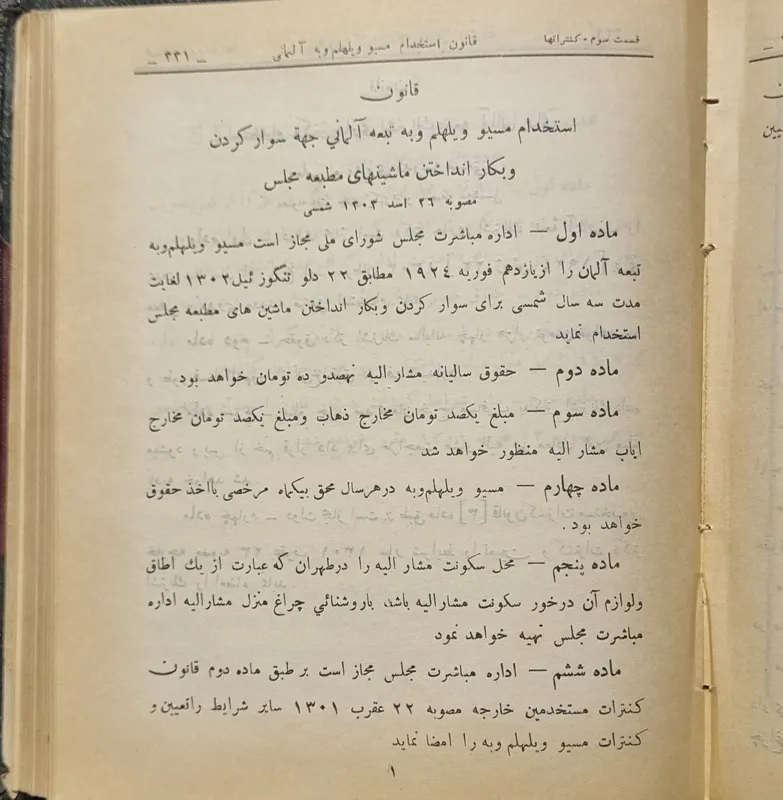 قسمت سوم - کنتراتها
قانون استخدام مسیو ویلهلم وبه آلمانی
— ۳۳۱ —
قانون
استخدام مسیو ویلهلم وبه تبعه آلمانی جهة سوار کردن
وبکار انداختن ماشینهای مطبعه مجلس
مصوبه ۲۶ اسد ۱۳۰۳ شمسی
ماده اول — اداره مباشرت مجلس شورای ملی مجاز است مسیو ویلهلم‌وبه
تبعه آلمان را ازیازدهم فوریه ۱۹۲۴ مطابق ۲۲ دلو تنگوز ئیل۱۳۰۲ لغایت
مدت سه سال شمسی برای سوار کردن وبکار انداختن ماشین های مطبعه مجلس
استخدام نماید
ماده دوم — حقوق سالیانه مشار الیه نهصدو ده تومان خواهد بود
ماده سوم — مبلغ یکصد تومان مخارج ذهاب ومبلغ یکصد تومان مخارج
ایاب مشار الیه منظور خواهد شد
ماده چهارم — مسیو ویلهلم‌وبه درهرسال محق بیکماه مرخصی بااخذ حقوق
خواهد بود .
ماده پنجم — محل سکونت مشار الیه را درطهران که عبارت از یك اطاق
ولوازم آن درخور سکونت مشارالیه باشد، باروشنائی چراغ منزل مشارالیه اداره
مباشرت مجلس تهیه خواهد نمود
ماده ششم — اداره مباشرت مجلس مجاز است بر طبق ماده دوم قانون
کنترات مستخدمین خارجه مصوبه ۲۲ عقرب ۱۳۰۱ سایر شرایط راتعیین و
کنترات مسیو ویلهلم وبه را امضا نماید
۱